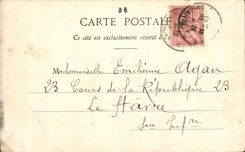 06
CARTE POSTALE
Ce côté est exclusivement réservé à
Mademoiselle Emilienne Agan
23 Cours de la République 23
Le Hâvre
Sne Infre